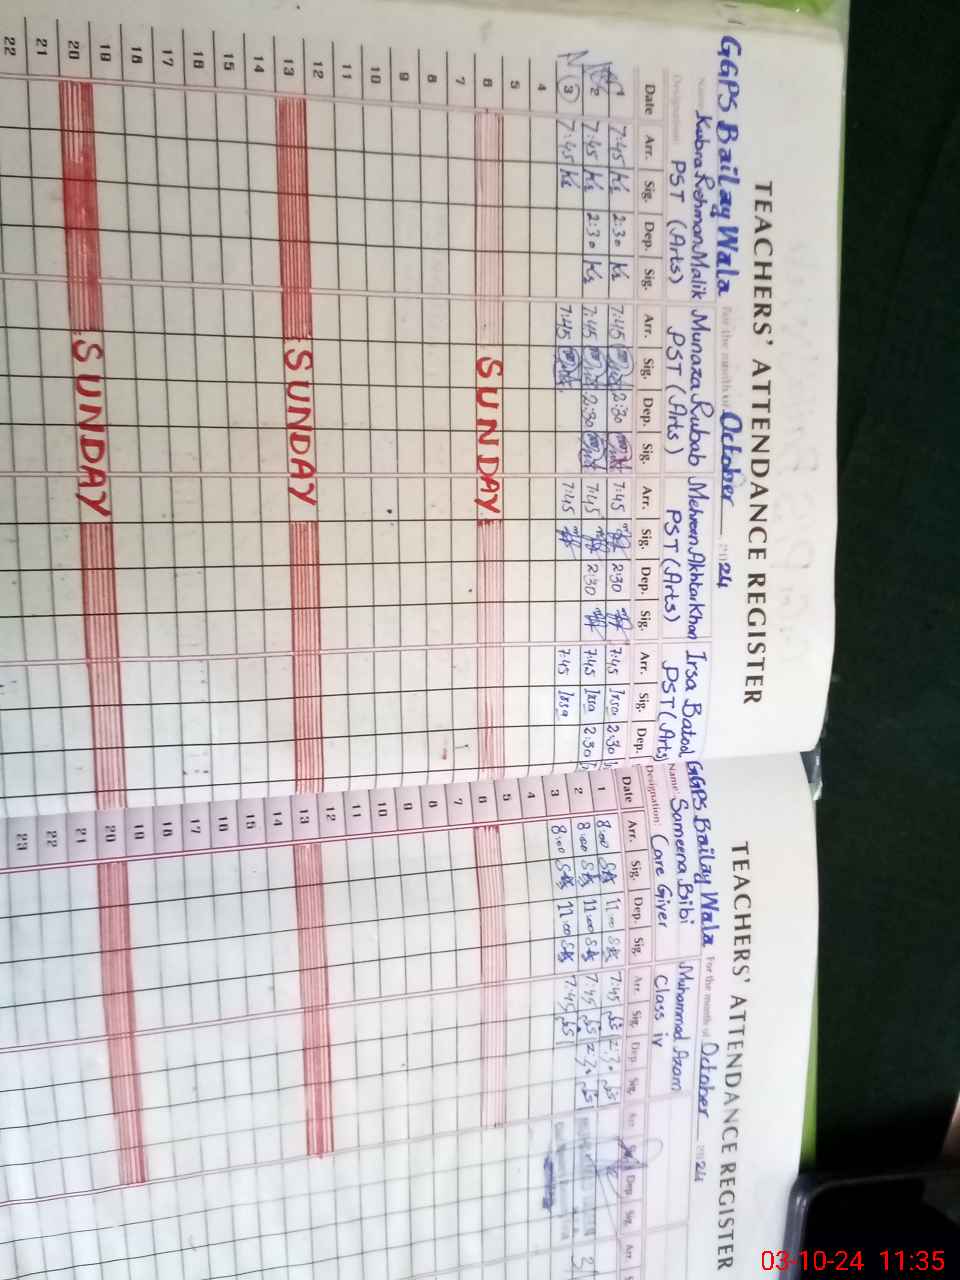 TEACHERS' ATTENDANCE REGISTER
GGPS Bailay Wala For the month of October 2024
Name Kubra Rehman Malik Munaza Rubab Mehreen Akhtar Khan Irsa Batool
Designation: PST (Arts) PST (Arts) PST (Arts) PST (Arts)
Date Arr. Sig. Dep. Sig. Arr. Sig. Dep. Sig. Arr. Sig. Dep. Sig. Arr. Sig. Dep.
1 7:45 Ks 2:30 Ks 7:45 2:30 7:45 2:30 7:45 Irsa 2:30
2 7:45 Ks 2:30 Ks 7:45 2:30 7:45 2:30 7:45 Irsa 2:30
3 7:45 Ks 7:45 7:45 7:45 Irsa
4
5
6 SUNDAY
7
8
9
10
11
12
13 SUNDAY
14
15
16
17
18
19
20 SUNDAY
21
22
TEACHERS' ATTENDANCE REGISTER
GGPS Bailay Wala For the month of October 2024
Name: Sameena Bibi Muhammad Azam
Designation: Care Giver Class iv
Date Arr. Sig. Dep. Sig. Arr. Sig. Dep. Sig. Arr. Sig. Dep. Sig. Arr.
1 8:00 11:00 7:45 2:30
2 8:00 11:00 7:45 2:30
3 8:00 11:00 7:45
4
5
6
7
8
9
10
11
12
13
14
15
16
17
18
19
20
21
22
23
03-10-24 11:35